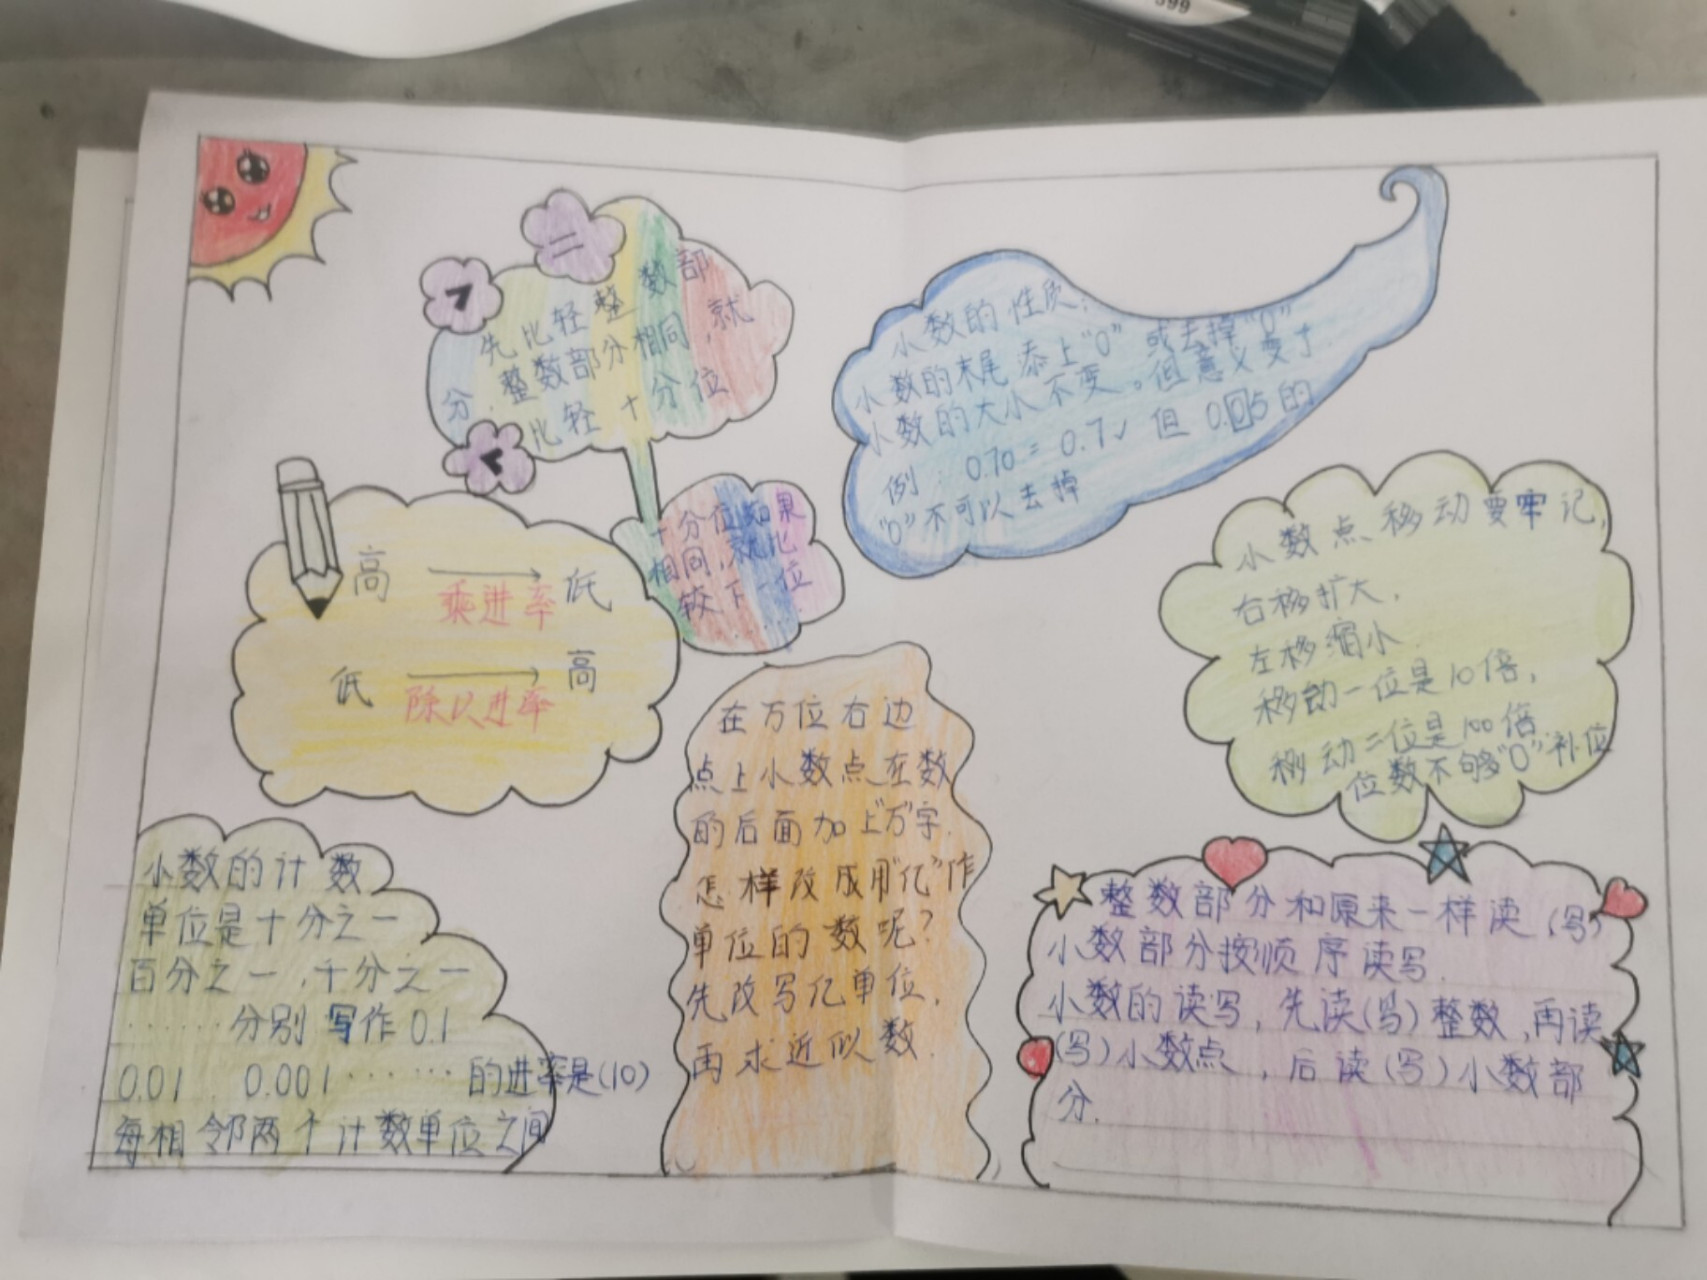 先比轻整数部
分,整数部分相同,就
比轻十分位
十分位如果
相同,就比
较下一位
小数的性质:
小数的末尾添上"0"或去掉"0"
小数的大小不变。但意义变了.
例:0.70=0.7√但0.05的
"0"不可以去掉
高→低
乘进率
低→高
除以进率
小数点移动要牢记,
右移扩大,
左移缩小.
移动一位是10倍,
移动二位是100倍
位数不够"0"补位
小数的计数
单位是十分之一
百分之一,千分之一
……分别写作0.1
0.01 0.001……的进率是(10)
每相邻两个计数单位之间
在万位右边
点上小数点在数
的后面加上"万"字.
怎样改成用"亿"作
单位的数呢?
先改写亿单位,
再求近似数.
整数部分和原来一样读(写)
小数部分按顺序读写.
小数的读写,先读(写)整数,再读
(写)小数点,后读(写)小数部
分.